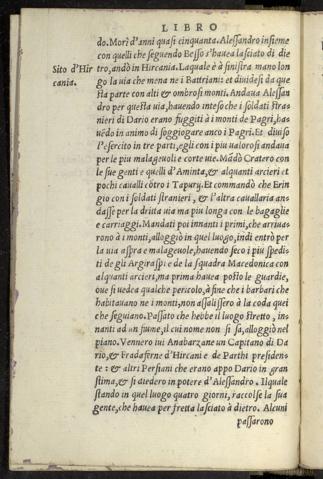 LIBRO
do. Morì d'anni quasi cinquanta. Alessandro insieme
con quelli che seguendo Besso s'hauea lasciato di die
tro, andò in Hircania. Laquale è à sinistra mano lon
go la uia che mena ne i Battriani: et diuidesi da que
sta parte con alti & ombrosi monti. Andaua Alessan
dro per questa uia, hauendo inteso che i soldati stra
nieri di Dario erano fuggiti à i monti de Pagri, ha
uẽdo in animo di soggiogare anco i Pagri. Et diuiso
l'esercito in tre parti, egli con i piu ualorosi andaua
per le piu malageuoli e corte uie. Mãdò Cratero con
le sue genti e quelli d'Aminta, & alquanti arcieri et
pochi caualli cõtro i Tapury. Et commandò che Erin
gio con i soldati stranieri, & l'altra cauallaria an-
dasse per la dritta uia ma piu longa con le bagaglie
e carriaggi. Mandati poi innanti i primi, che arriua-
rono à i monti, alloggiò in quel luogo, indi entrò per
la uia aspra e malageuole, hauendo seco i piu spedi-
ti de gli Argiraspi e de la squadra Macedonica con
alquanti arcieri, ma prima hauea posto le guardie,
oue si uedea qualche pericolo, à fine che i barbari che
habitauano ne i monti, non assalissero à la coda quei
che seguiano. Passato che hebbe il luogo stretto, in-
nanti ad un fiume, il cui nome non si sa, alloggiò nel
piano. Vennero iui Anabarzane un Capitano di Da
rio, & Fradaferne d'Hircani e de Parthi presiden-
te: & altri Persiani che erano appo Dario in gran
stima, & si diedero in potere d'Alessandro. Il quale
stando in quel luogo quatro giorni, raccolse la sua
gente, che hauea per fretta lasciato à dietro. Alcuni
passarono
Sito d'Hir
cania.